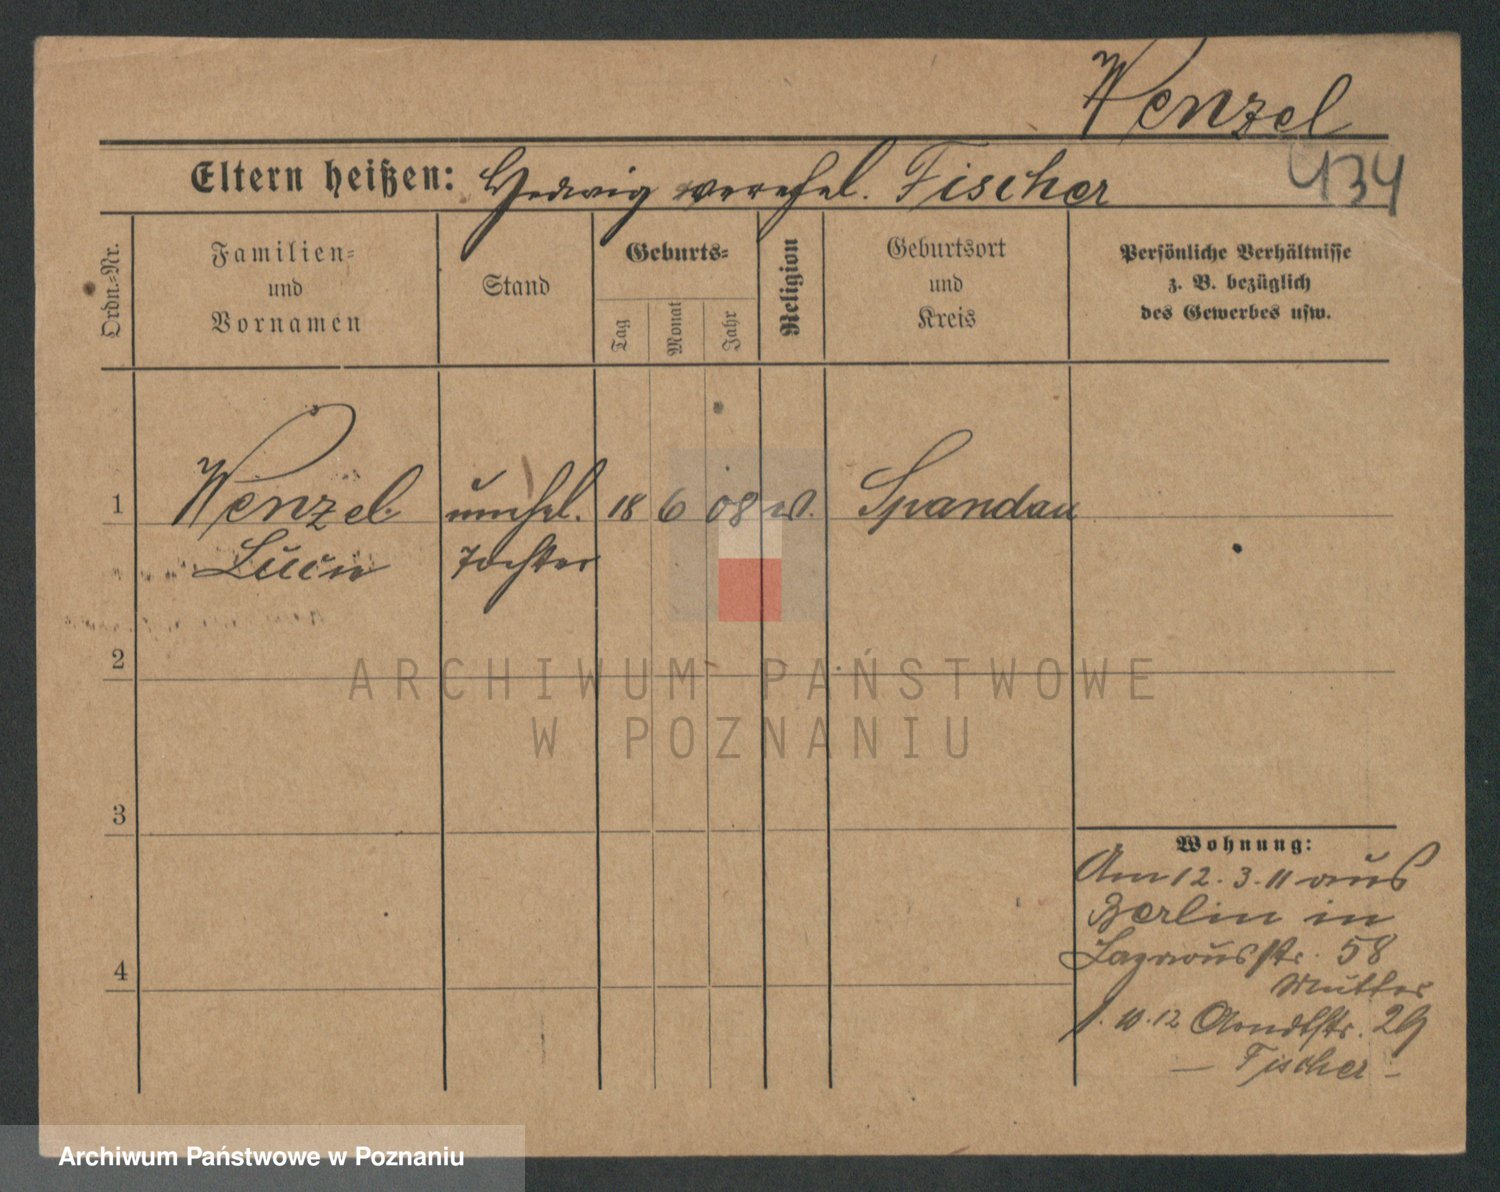 Wenzel
434
Eltern heißen: Hedwig verehel. Fischer
Ordn.-Nr.
Familien-
und
Vornamen
Stand
Geburts-
Tag
Monat
Jahr
Religion
Geburtsort
und
Kreis
Persönliche Verhältnisse
z. B. bezüglich
des Gewerbes usw.
1 Wenzel unehel. 18 6 08 Spandau
Tochter
2
3
4
Wohnung:
Am 12.3.11 aus
Berlin in
Lazarusstr. 58
Mutter
1.10.12 Arndtstr. 29
— Fischer —
ARCHIWUM PAŃSTWOWE
W POZNANIU
Archiwum Państwowe w Poznaniu